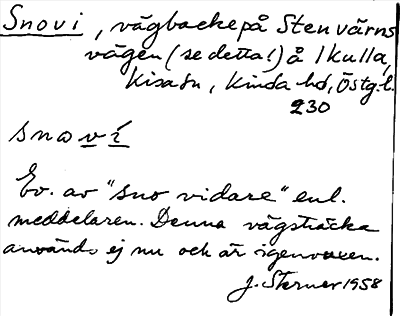 Snovi, vägbacke på Stenvärns
vägen (se detta!) å Ikulla,
Kisa sn, Kinda hd, Östg. l.
230
snoví
Ev. av "sno vidare" enl.
meddelaren. Denna vägsträcka
används ej nu och är igenvuxen.
J. Sterner 1958